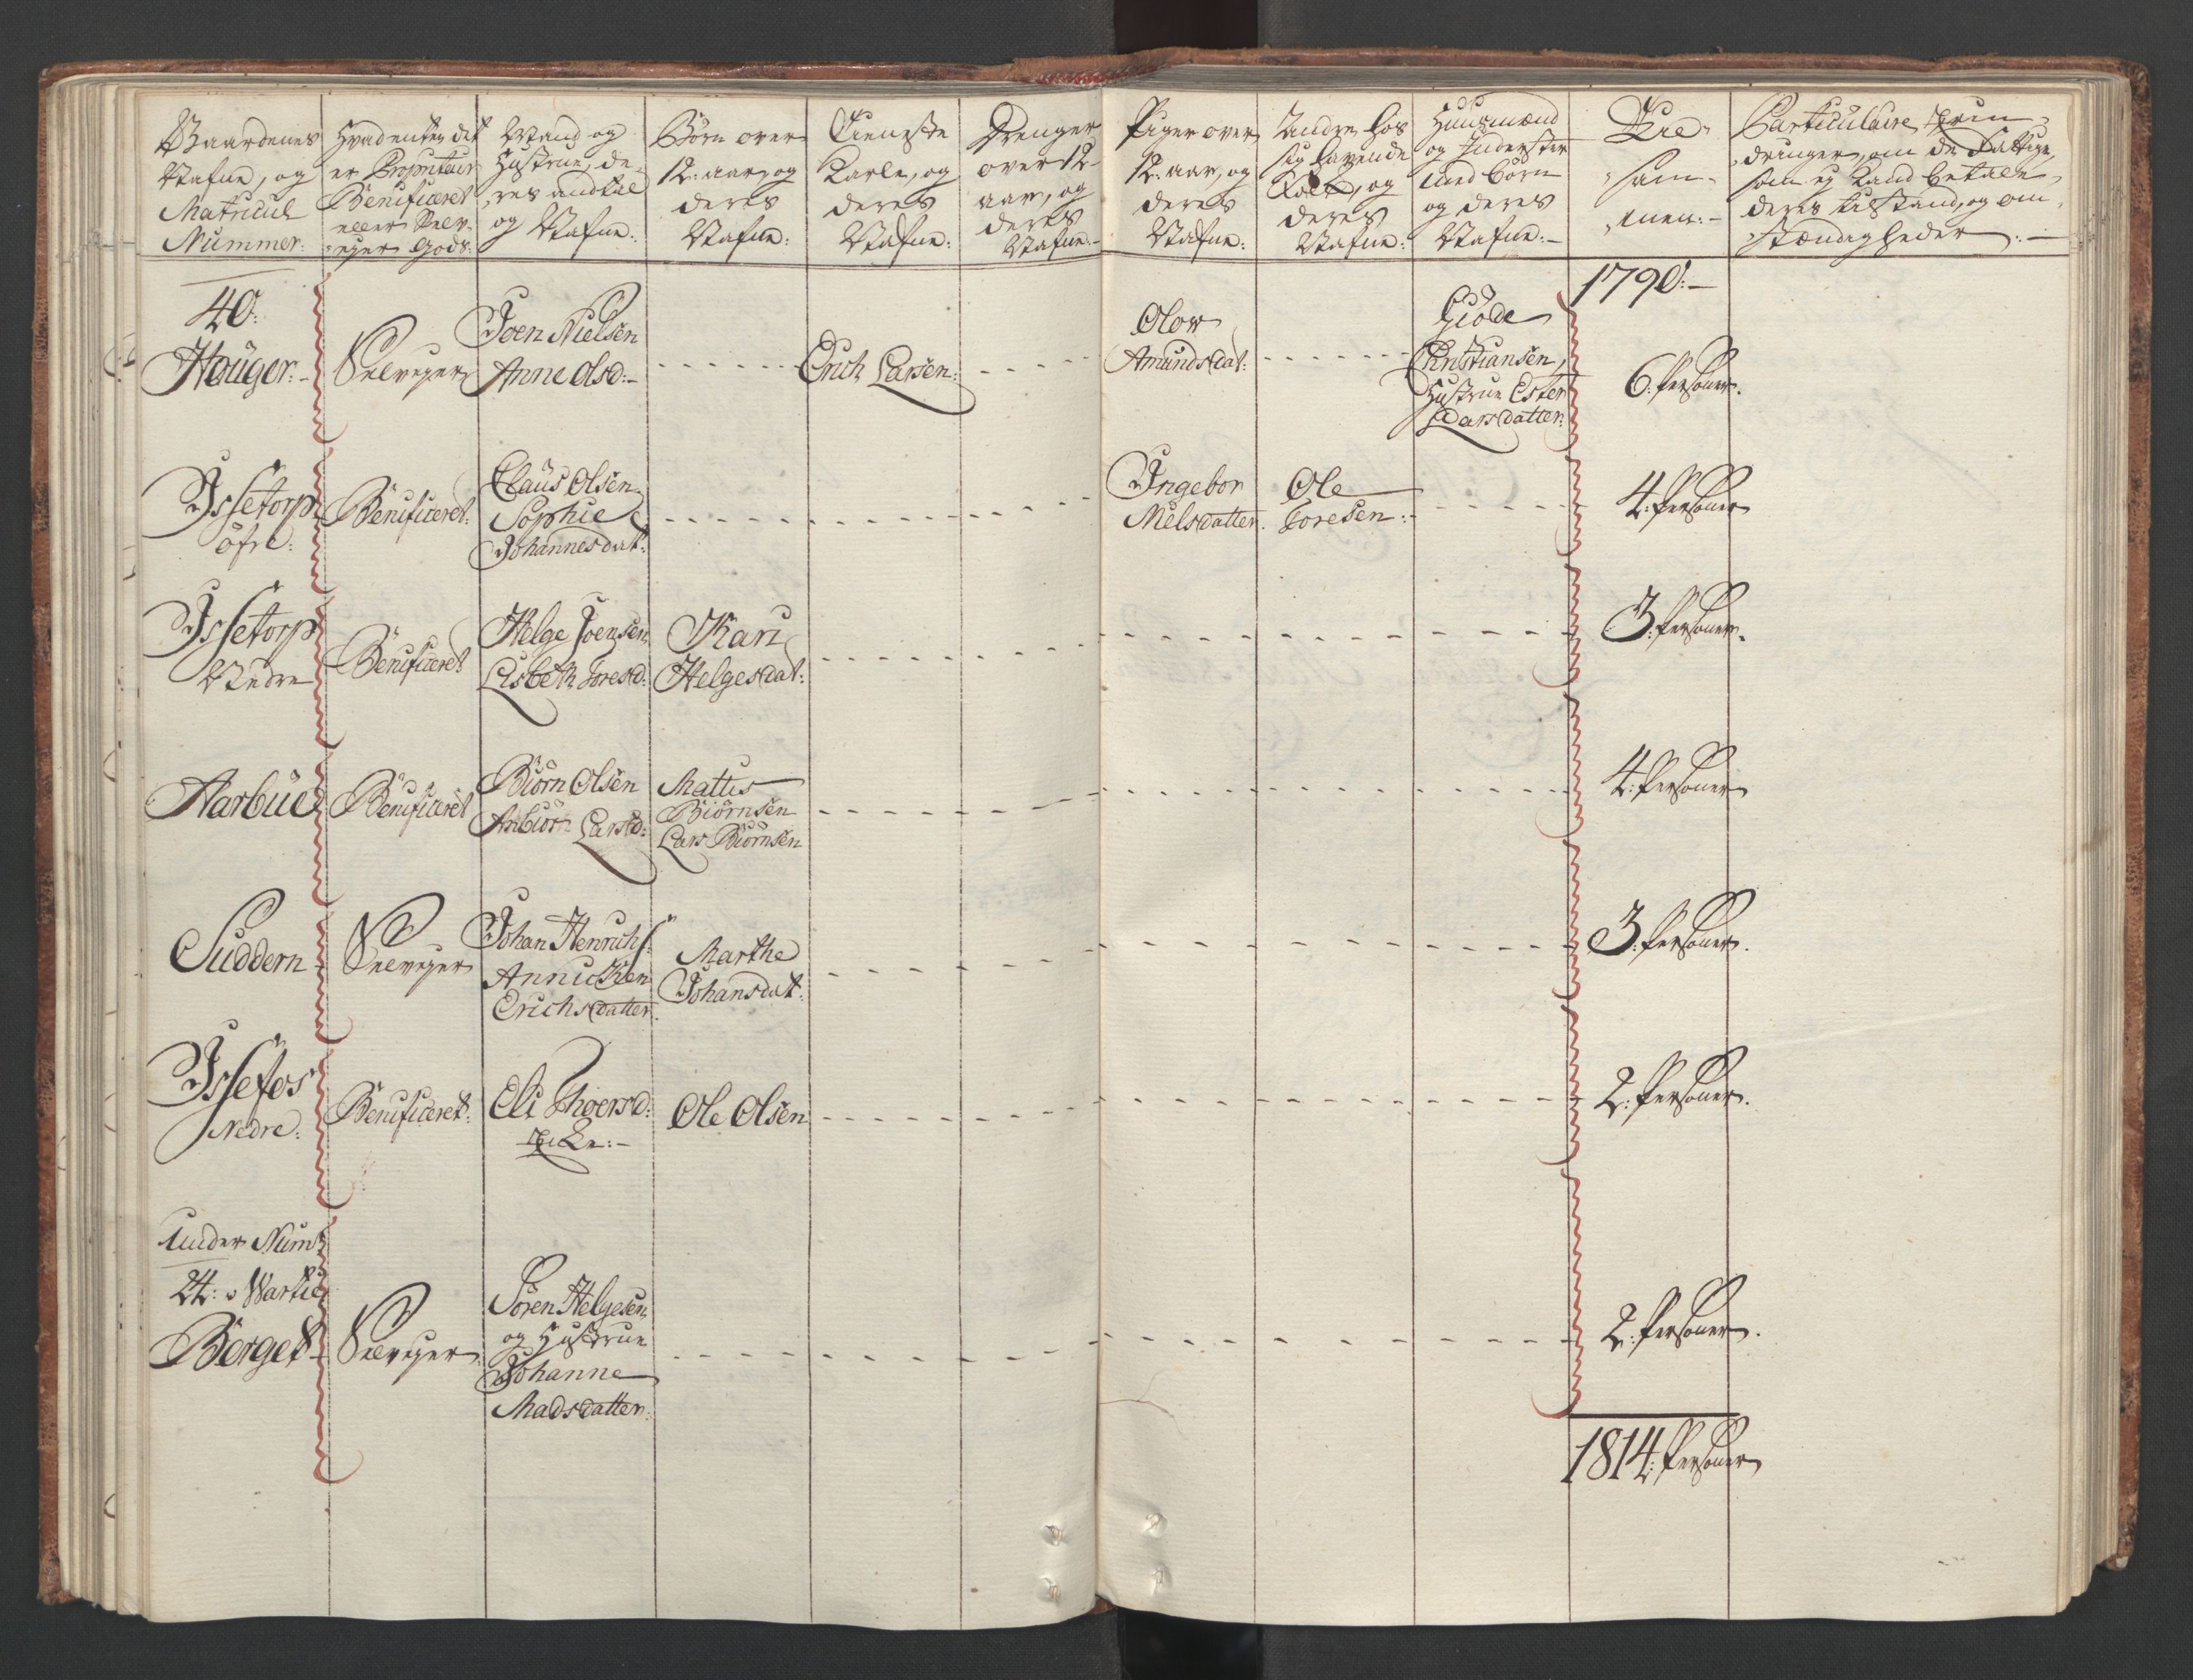 Gaardenes
Nafne, og
Matricul
Nummer:
Hvadenten det
er Proprietair
Benificeret
eller Selv-
ejer Gods:
Mand og
Hustrue, de-
res andtal
og Nafne:
Børn over
12: aar, og
deres
Nafne:
Tieneste
Karle, og
deres
Nafne:
Drenger
over 12
aar, og
deres
Nafne:-
Piger over
12: aar, og
deres
Nafne:
Andre hos
sig havende
Folk, og
deres
Nafne:
Huusmænd
og Inderster
med børn
og deres
Nafne:-
Til-
sam-
men:-
Particulaire Erin-
dringer, om de Fattige,
som ej kand betale,
deres tilstand, og om-
stændigheder:-
1790:-
40:
Houger:-
Selvejer
Joen Nielsen
Anne Olsd:-
Erich Larsen:
Olow
Amundsdat:
Giøde
Christiansen,
Hustrue Ester
Larsdatter:
6: Personer.
Jssetorp
öfre:
Benificeret:
Claus Olsen
Sophie
Johannesdat:
Ingebor
Nielsdatter.
Ole
Toresen:
4: Personer
Jssetorp
Nedre
Benificeret
Helge Joensen
Lisbeth Toresd:
Kari
Helgesdat:
3: Personer.
Aarbue
Benificeret
Biørn Olsen
Anbiør Larsd:
Mattis
Biørnsen
Lars Biørnsen
4: Personer
Suddern
Selvejer
Johan Henrichs:
Annichen
Erichsdatter.
Marthe
Johansdat:
3: Personer.
Jssefos
Nedre:
Benificeret:
Eli Thoersd:
Encke:-
Ole Olsen
2: Personer.
Under Num:
24: Wartie
Berget
Selvejer
Søren Helgesen
og Hustrue
Johanne
Madsdatter:
2: Personer.
1814: Personer